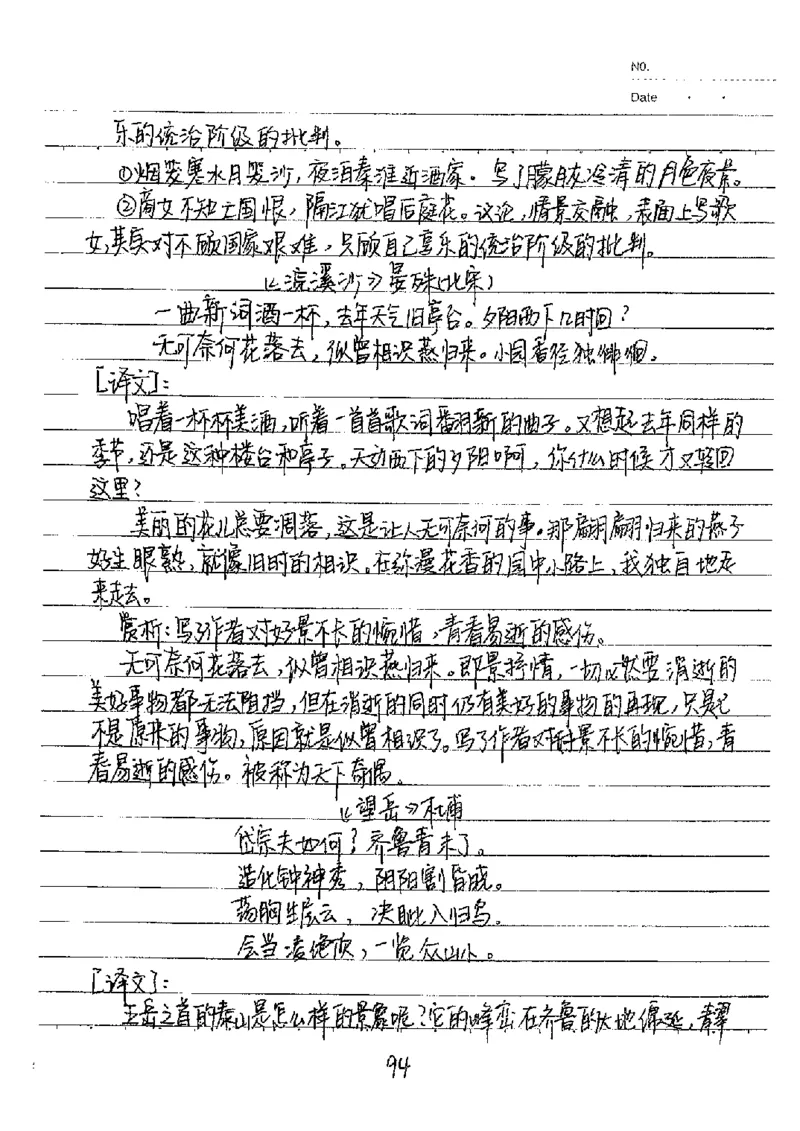 NO.
Date
乐的统治阶级的批判。
①烟笼寒水月笼沙，夜泊秦淮近酒家。写了朦胧冷清的月色夜景。
②商女不知亡国恨，隔江犹唱后庭花。议论，情景交融，表面上写歌
女，其实对不顾国家艰难，只顾自己享乐的统治阶级的批判。
《浣溪沙》晏殊（北宋）
一曲新词酒一杯，去年天气旧亭台。夕阳西下几时回？
无可奈何花落去，似曾相识燕归来。小园香径独徘徊。
[译文]：
唱着一杯杯美酒，听着一首首歌词翻新的曲子。又想起去年同样的
季节，还是这种楼台和亭子。天边西下的夕阳啊，你什么时候才又转回
这里？
美丽的花儿总要凋落，这是让人无可奈何的事。那翩翩归来的燕子
好生眼熟，就像旧时的相识。在弥漫花香的园中小路上，我独自地走
来走去。
赏析：写了作者对好景不长的惋惜，青春易逝的感伤。
无可奈何花落去，似曾相识燕归来。即景抒情，一切必然要消逝的
美好事物都无法阻挡，但在消逝的同时仍有美好的事物的再现，只是
不是原来的事物，原因就是似曾相识了。写了作者对好景不长的惋惜，青
春易逝的感伤。被称为天下奇偶。
《望岳》杜甫
岱宗夫如何？齐鲁青未了。
造化钟神秀，阴阳割昏晓。
荡胸生层云，决眦入归鸟。
会当凌绝顶，一览众山小。
[译文]：
五岳之首的泰山是怎么样的景象呢？它的峰峦在齐鲁的大地绵延，青翠
94